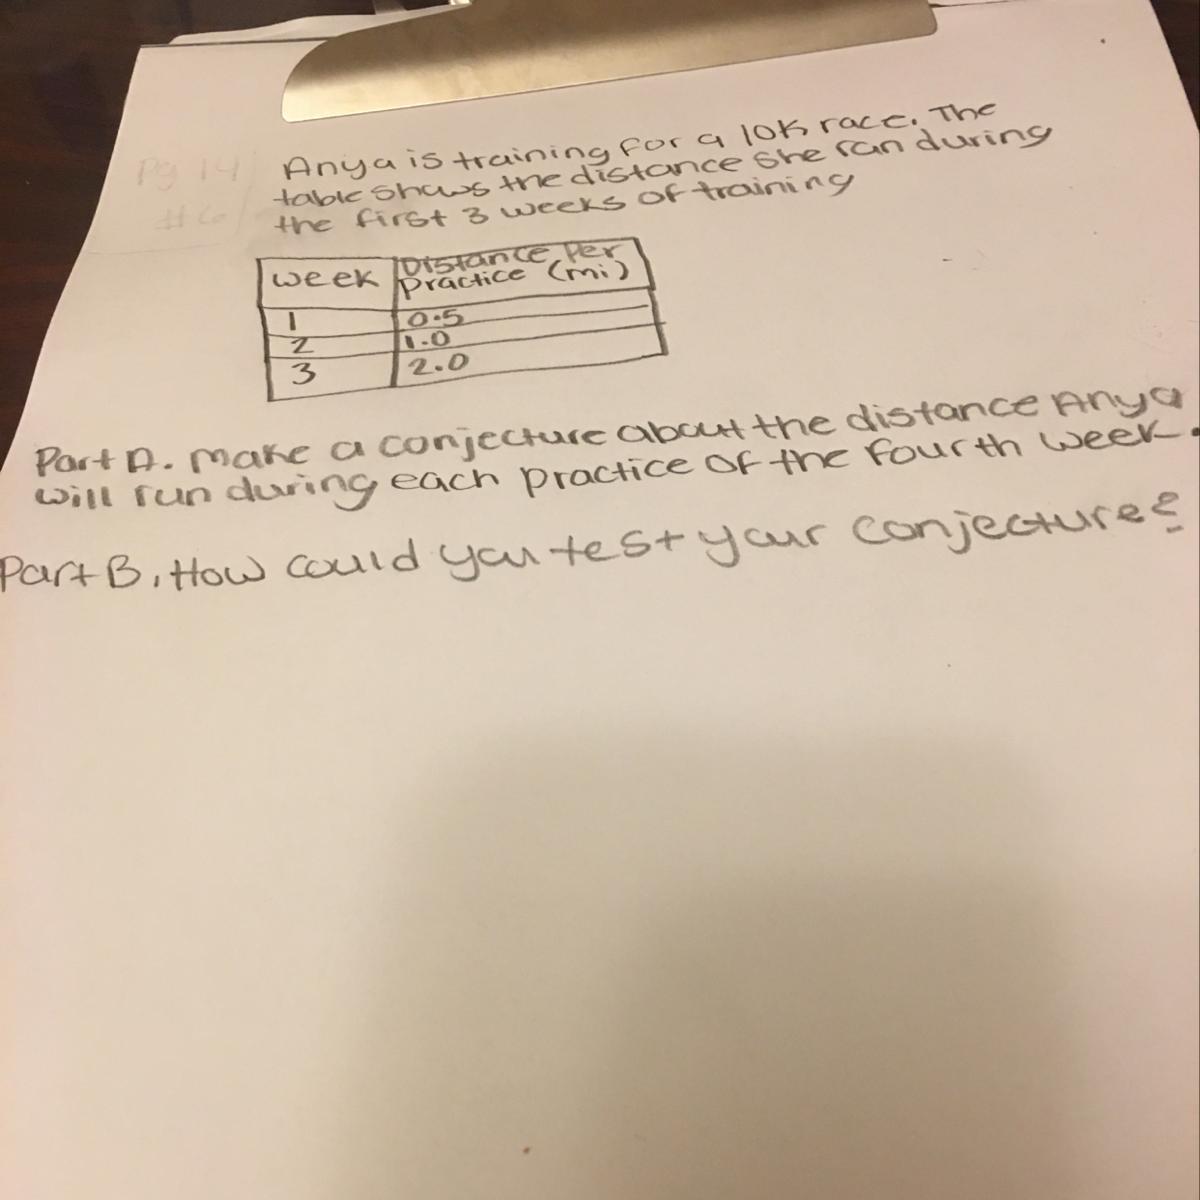 Pg 14
#6
Anya is training for a 10K race. The
table shows the distance she ran during
the first 3 weeks of training
week Distance Per
Practice (mi)
1 0.5
2 1.0
3 2.0
Part A. Make a conjecture about the distance Anya
will run during each practice of the fourth week.
Part B. How could you test your conjecture?